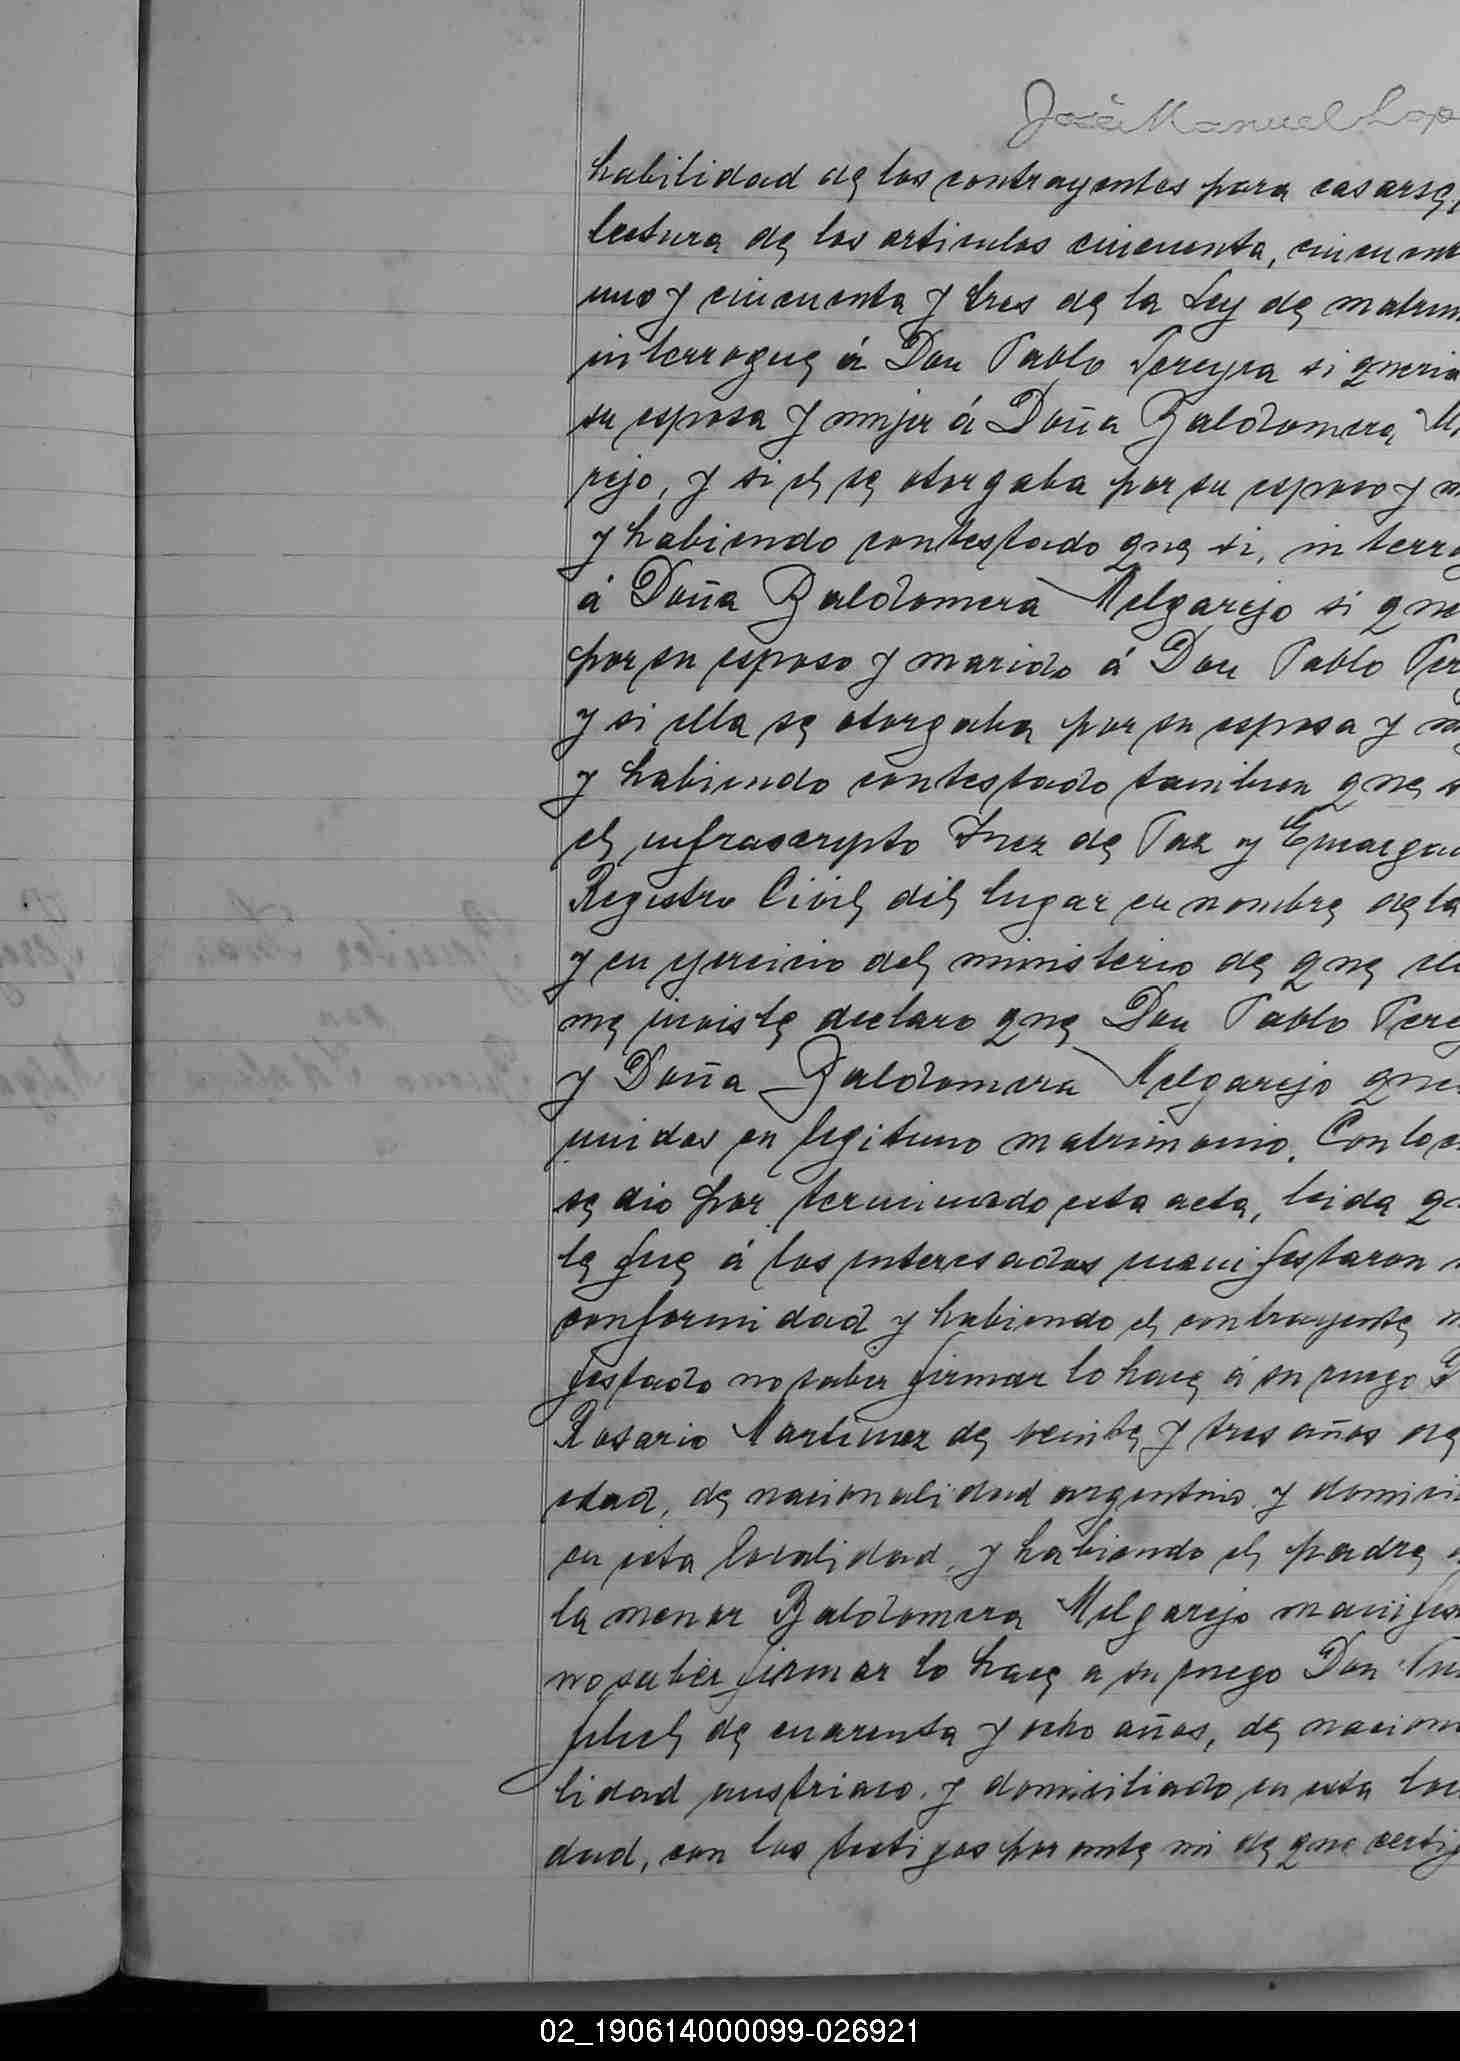 José Manuel Lop
habilidad de los contrayentes para casarse,
lectura de los articulos cincuenta, cincuent
uno y cincuenta y tres de la Ley de matrim
interrogue á Don Pablo Pereyra si queria
su esposa y mujer á Doña Baldomera M
rejo, y si el se otorgaba por su esposo y m
y habiendo contestado que si, interro
á Doña Baldomera Melgarejo si que
por su esposo y marido á Don Pablo Per
y si ella se otorgaba por su esposa y m
y habiendo contestado tambien que s
el infrascripto Juez de Paz y Encarga
Registro Civil del lugar en nombre de la
y en ejercicio del ministerio de que ell
me inviste declaro que Don Pablo Perey
y Doña Baldomera Melgarejo que
unidos en legitimo matrimonio. Con lo c
se dio por terminado esta acta, leida q
le fue á los interesados manifestaron
conformidad y habiendo el contrayente m
festado no saber firmar lo hace á su ruego
Rosario Martinez de veinte y tres años de
edad, de nacionalidad argentino y domici
en esta localidad, y habiendo el padre
la menor Baldomera Melgarejo manifes
no saber firmar lo hace a su ruego Don
de cuarenta y ocho años, de nacion
lidad austriaco y domiciliado en esta loc
dad, con los testigos por ante mi de que certif
02_190614000099-026921